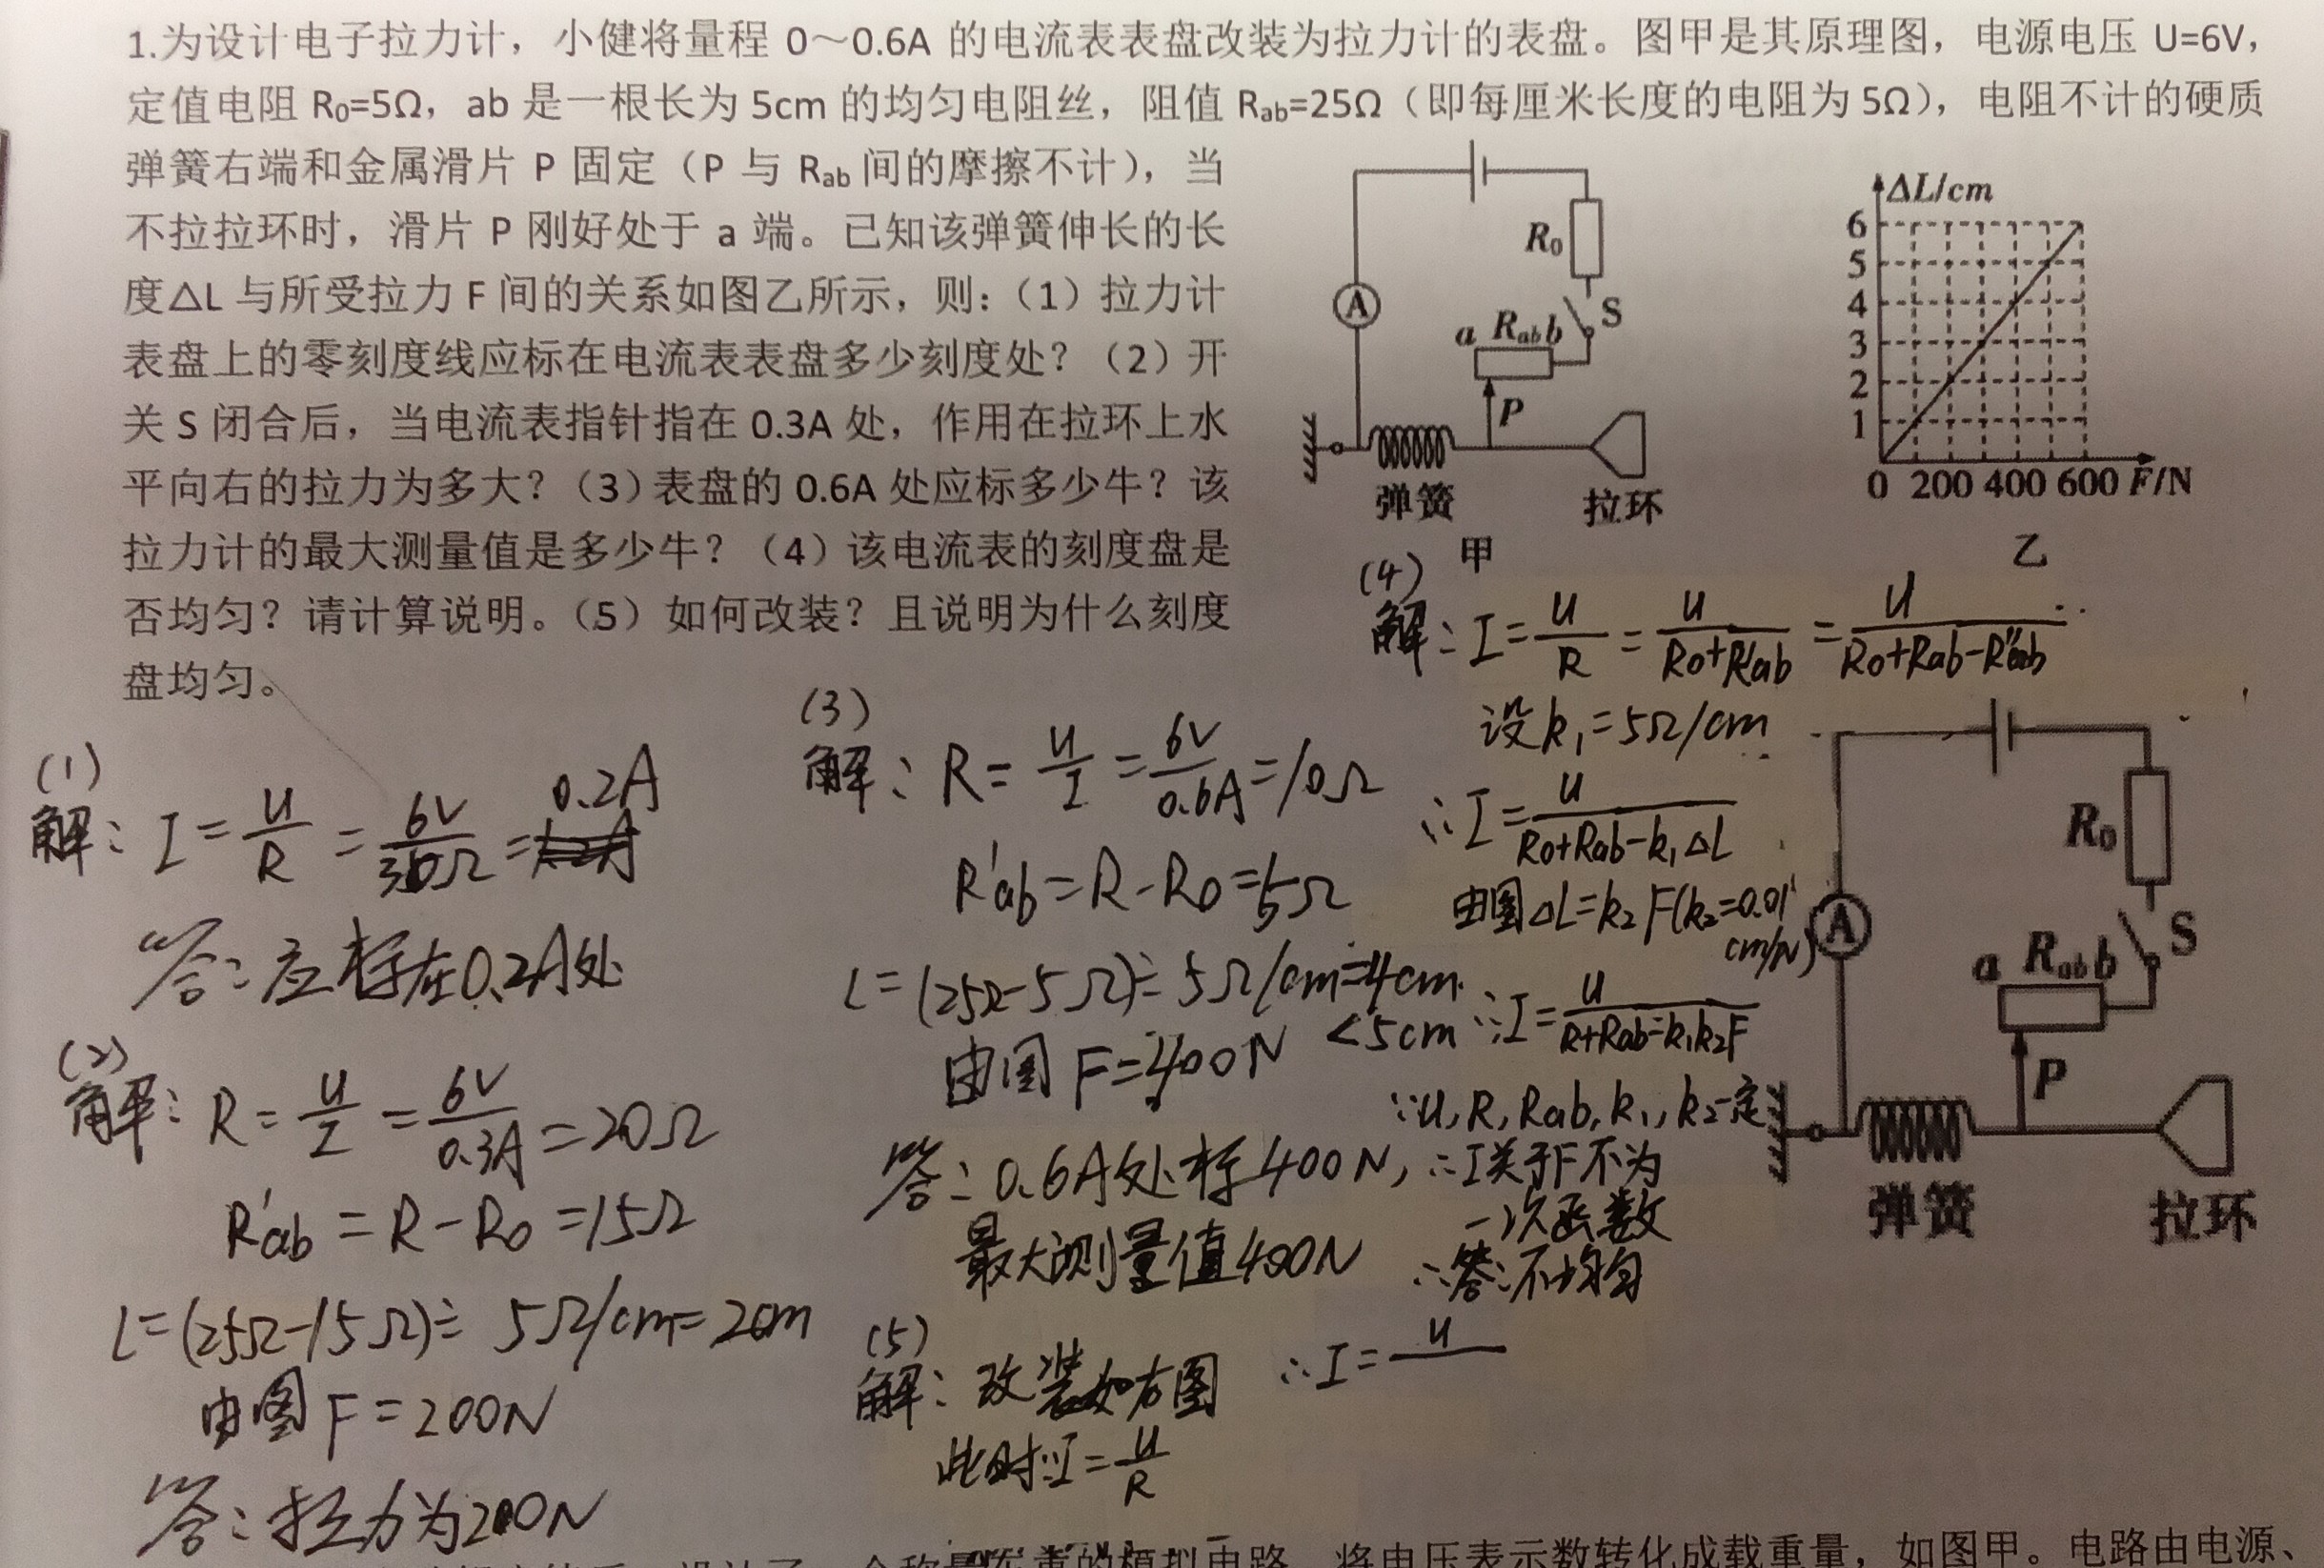 1.为设计电子拉力计，小健将量程 0～0.6A 的电流表表盘改装为拉力计的表盘。图甲是其原理图，电源电压 U=6V，
定值电阻 R₀=5Ω，ab 是一根长为 5cm 的均匀电阻丝，阻值 Rab=25Ω（即每厘米长度的电阻为 5Ω），电阻不计的硬质
弹簧右端和金属滑片 P 固定（P 与 Rab 间的摩擦不计），当
不拉拉环时，滑片 P 刚好处于 a 端。已知该弹簧伸长的长
度△L 与所受拉力 F 间的关系如图乙所示，则：（1）拉力计
表盘上的零刻度线应标在电流表表盘多少刻度处？（2）开
关 S 闭合后，当电流表指针指在 0.3A 处，作用在拉环上水
平向右的拉力为多大？（3）表盘的 0.6A 处应标多少牛？该
拉力计的最大测量值是多少牛？（4）该电流表的刻度盘是
否均匀？请计算说明。（5）如何改装？且说明为什么刻度
盘均匀。
A
R₀
S
a Rab b
P
弹簧
拉环
甲
ΔL/cm
6
5
4
3
2
1
0 200 400 600 F/N
乙
(1)
解：I=U/R=6V/30Ω=0.2A
答：应标在0.2A处
(2)
解：R=U/I=6V/0.3A=20Ω
R'ab=R-R₀=15Ω
L=(25Ω-15Ω)÷5Ω/cm=2cm
由图 F=200N
答：拉力为200N
(3)
解：R=U/I=6V/0.6A=10Ω
R'ab=R-R₀=5Ω
L=(25Ω-5Ω)÷5Ω/cm=4cm
<5cm
由图 F=400N
答：0.6A处标400N，
最大测量值400N
(4)
解：I=U/R=U/(R₀+R'ab)=U/(R₀+Rab-R''ab)
设k₁=5Ω/cm
∴I=U/(R₀+Rab-k₁ΔL)
由图ΔL=k₂F(k₂=0.01
cm/N)
∴I=U/(R+Rab-k₁k₂F)
∵U,R,Rab,k₁,k₂一定
∴I关于F不为
一次函数
∴答：不均匀
(5)
解：改装如右图
此时∵I=U/R
∴I=U/
A
R₀
S
a Rab b
P
弹簧
拉环
将电压表示数转化成载重量，如图甲。电路由电源、